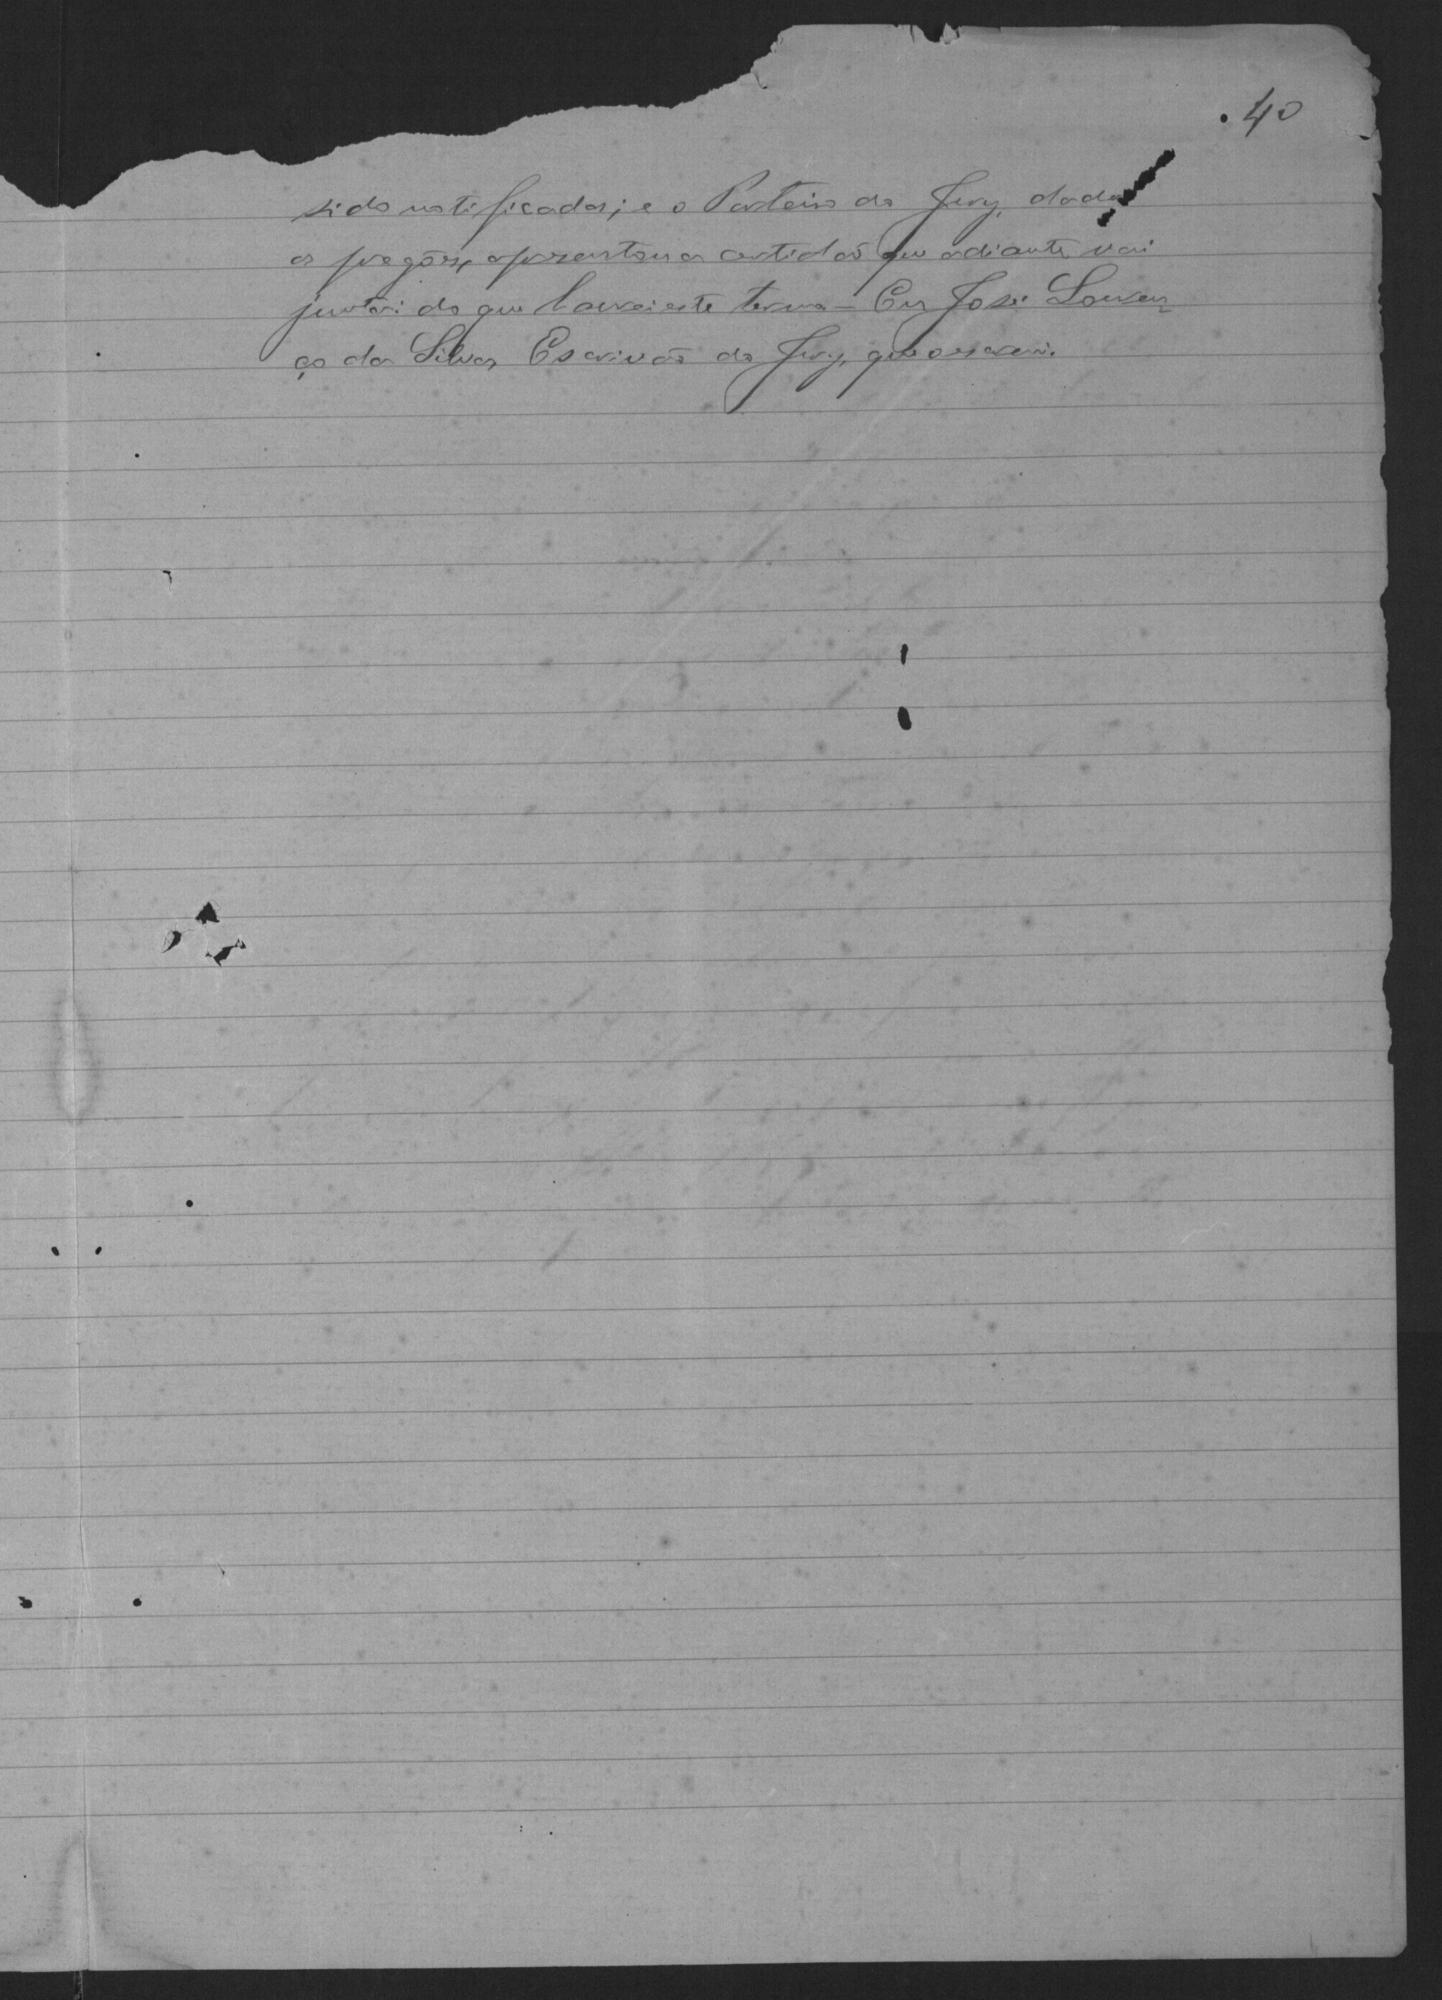 40
sido notificados; e o Porteiro do Jury, dados
os pregões, apresentou a certidão que adiante vai
junta: do que lavrei este termo — Eu José Louren
ço da Silva, Escrivão do Jury, que o escrevi.